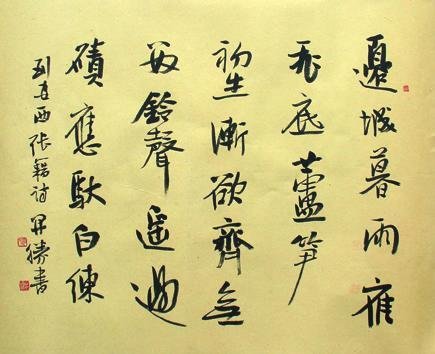 邊城暮雨雁
飛底蘆筍
初生漸欲齊無
數鈴聲遥過
磧應馱白練
到安西張籍詩 勝書